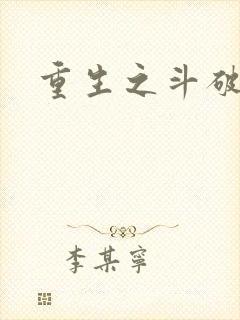 重生之斗破
李某宁